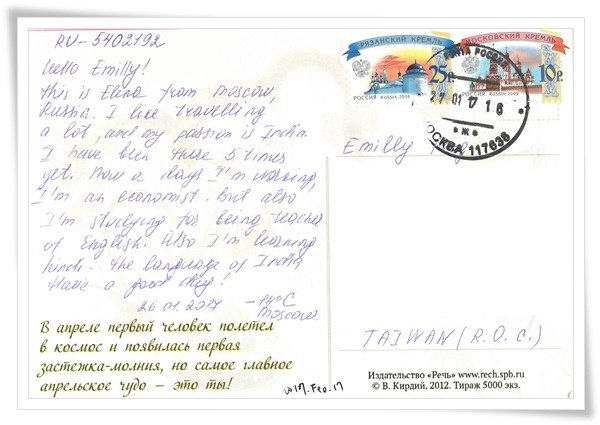 RU-5402192
Hello Emilly!
This is Elena from Moscow,
Russia. I like travelling
a lot, and my passion is India.
I have been there 5 times
yet. Now a days I'm working,
I'm an economist. But also
I'm studying for being teacher
of English. Also I'm learning
hindi - the language of India
Have a good day!
26.01.2017 -14°C
Moscow
В апреле первый человек полетел
в космос и появилась первая
застежка-молния, но самое главное
апрельское чудо — это ты!
РЯЗАНСКИЙ КРЕМЛЬ
25р.
РОССИЯ RUSSIA 2009
МОСКОВСКИЙ КРЕМЛЬ
10р.
РОССИЯ RUSSIA 2009
ПОЧТА РОССИИ
27 01 17 16
* Ж *
МОСКВА 117636
Emilly
TAIWAN (R.O.C.)
Издательство «Речь» www.rech.spb.ru
© В. Кирдий, 2012. Тираж 5000 экз.
17.Feb.17